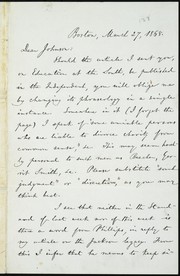 Boston, March 27, 1868.
Dear Johnson:
Should the article I sent you,
on Education at the South, be published
in the Independent, you will oblige me
by changing its phraseology in a single
instance. Somewhere in it (I forget the
page) I speak of "our amiable persons
who are liable to divorce charity from
common sense," &c. This may seem
presented to such men as
Gerrit Smith, &c. Please substitute "
judgment" or "discretion," as you may
think best.
I see that neither in the Stand-
ard of last week nor of this week is
there a word from Phillips, in reply to
my article on the Jackson legacy. From
this I infer that he means to keep